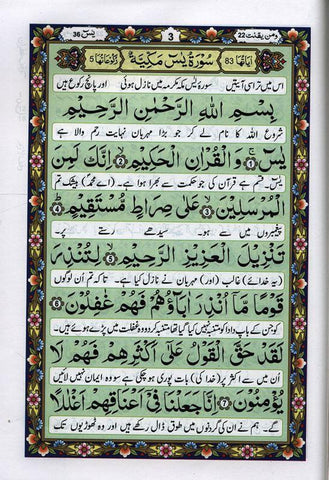 ومن یقنت 22
3
یٰسٓ 36
اٰیَاتُهَا 83
سُوْرَةُ یٰسٓ مَکِّیَّةٌ
رُکُوْعَاتُهَا 5
اس میں تراسی آیتیں سورۂ یٰس مکہ مکرمہ میں نازل ہوئی اور پانچ رکوع ہیں
بِسْمِ اللّٰهِ الرَّحْمٰنِ الرَّحِیْمِ
شروع اللہ کا نام لے کر جو بڑا مہربان نہایت رحم والا ہے
یٰسٓ ① وَ الْقُرْاٰنِ الْحَكِیْمِ ② اِنَّكَ لَمِنَ
یٰسٓ۔ قسم ہے قرآن کی جو حکمت سے بھرا ہوا ہے۔ (اے محمدؐ) بیشک تم
الْمُرْسَلِیْنَ ③ عَلٰى صِرَاطٍ مُّسْتَقِیْمٍ ④
پیغمبروں میں سے ہو۔ سیدھے رستے پر۔
تَنْزِیْلَ الْعَزِیْزِ الرَّحِیْمِ ⑤ لِتُنْذِرَ
(یہ خدائے) غالب (اور) مہربان نے نازل کیا ہے۔ تاکہ تم اُن لوگوں
قَوْمًا مَّاۤ اُنْذِرَ اٰبَآؤُهُمْ فَهُمْ غٰفِلُوْنَ ⑥
کو جن کے باپ دادا کو متنبہ نہیں کیا گیا تھا متنبہ کر دو وہ غفلت میں پڑے ہوئے ہیں۔
لَقَدْ حَقَّ الْقَوْلُ عَلٰۤى اَكْثَرِهِمْ فَهُمْ لَا
اُن میں سے اکثر پر (خدا کی) بات پوری ہو چکی ہے سو وہ ایمان نہیں لائیں
یُؤْمِنُوْنَ ⑦ اِنَّا جَعَلْنَا فِیْۤ اَعْنَاقِهِمْ اَغْلٰلًا
گے۔ ہم نے ان کی گردنوں میں طوق ڈال رکھے ہیں اور وہ ٹھوڑیوں تک